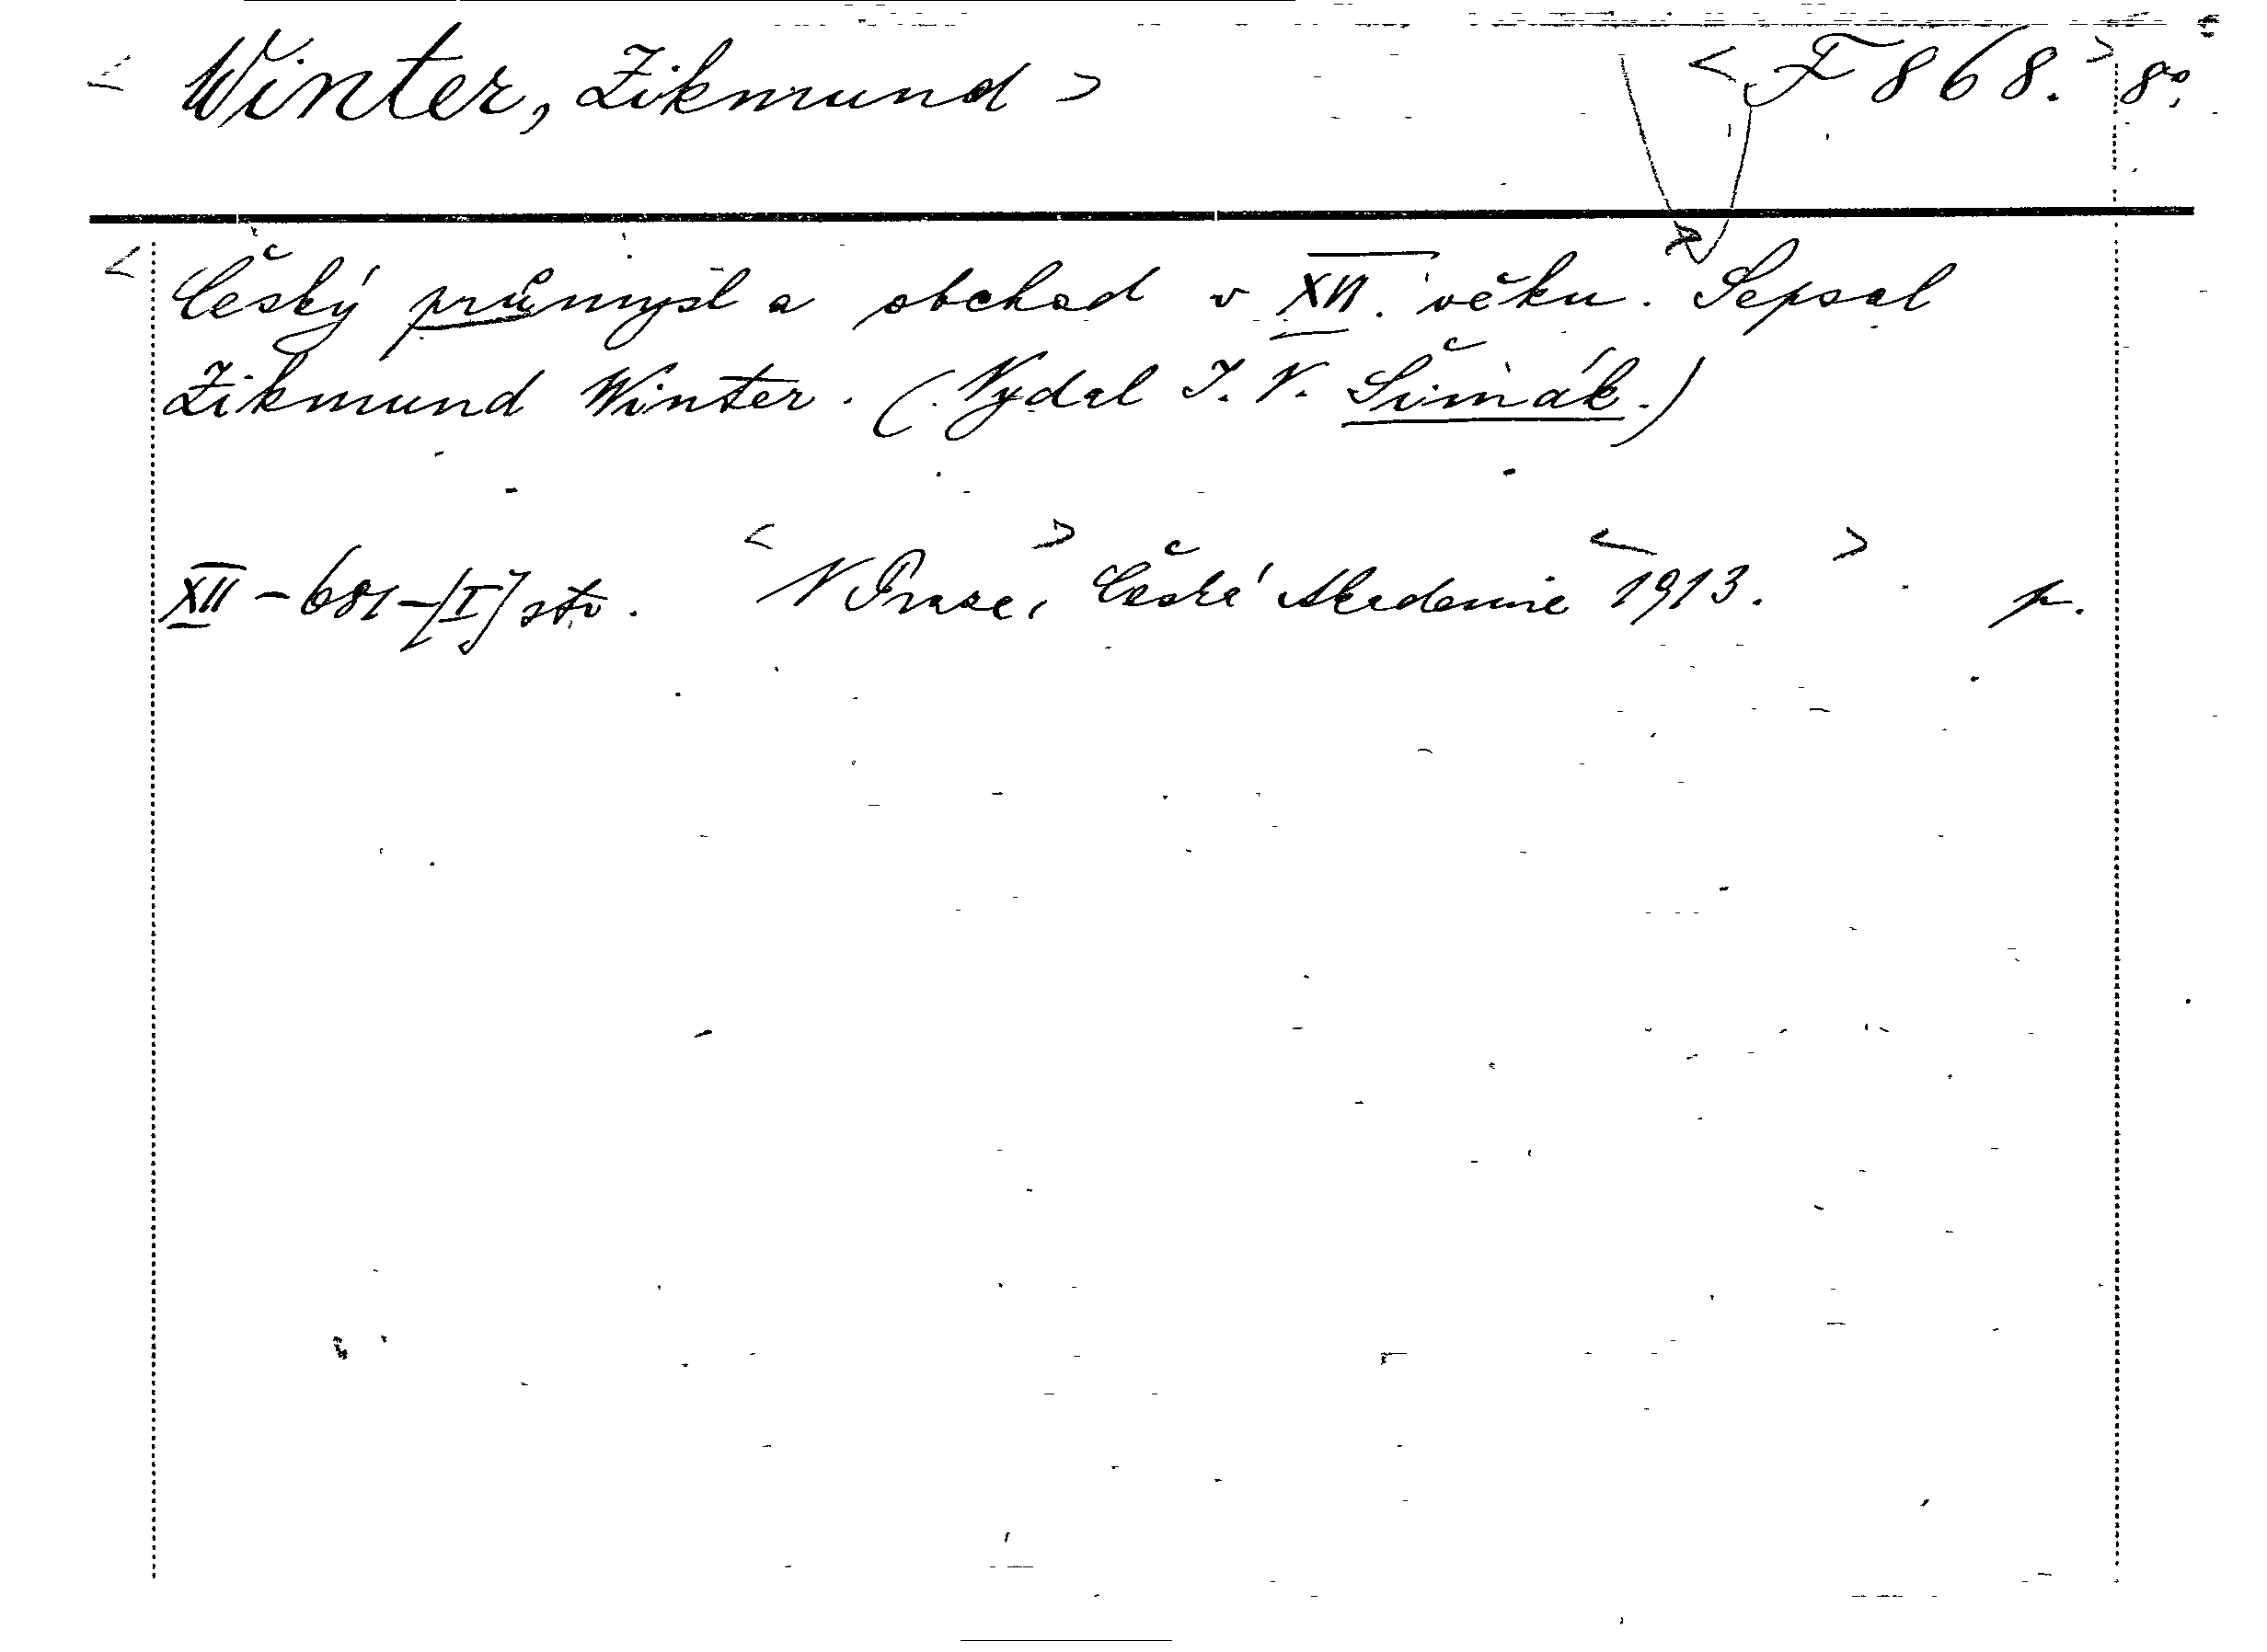 < Winter, Zikmund > < F 868. > 8°.
< Český průmysl a obchod v XVI. věku. > Sepsal
Zikmund Winter. (Vydal J. V. Šimák.)
XII - 681 - [I] str. < V Praze, > Česká Akademie < 1913. > p.